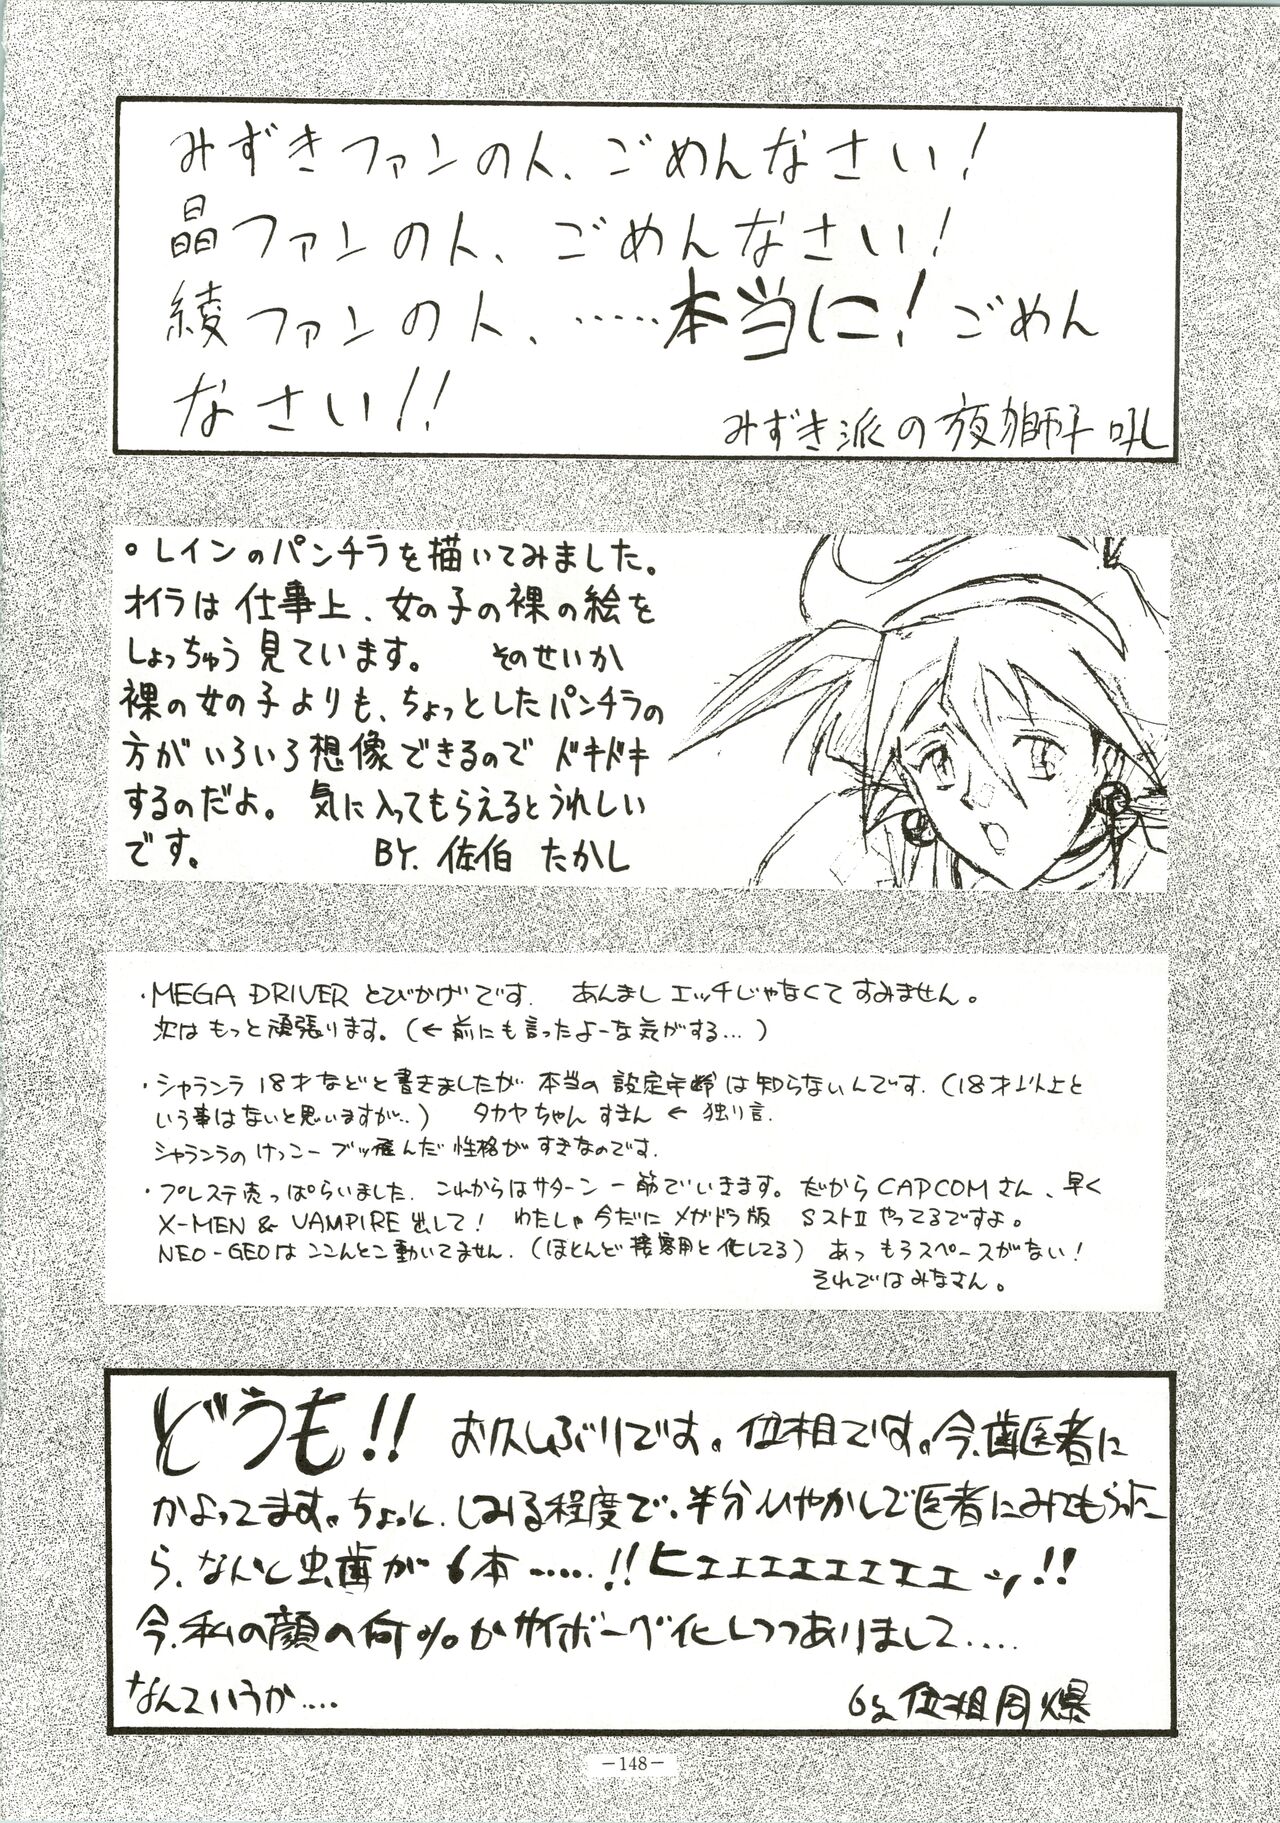 みずきファンの人、ごめんなさい!
晶ファンの人、ごめんなさい!
綾ファンの人、……本当に!ごめん
なさい!!
みずき派の夜獅子吼
。レインのパンチラを描いてみました。
オイラは仕事上、女の子の裸の絵を
しょっちゅう見ています。 そのせいか
裸の女の子よりも、ちょっとしたパンチラの
方がいろいろ想像できるので ドキドキ
するのだよ。 気に入ってもらえるとうれしい
です。 BY. 佐伯 たかし
・MEGA DRIVER とびかげです. あんまし エッチじゃなくて すみません。
次は もっと頑張ります。(← 前にも言ったよーな気がする…)
・シャランラ 18才などと書きましたが 本当の 設定年齢は知らないんです.(18才以上と
いう事はないと思いますが…) タカヤちゃん すまん ← 独り言.
シャランラの けっこー ブッ飛んだ 性格が すきなのです.
・プレステ売っぱらいました. これからはサターン一筋でいきます。だから CAPCOMさん、早く
X-MEN & VAMPIRE 出して! わたしゃ 今だに メガドラ版 SストII やってるですよ。
NEO-GEOは ここんとこ 動いてません.(ほとんど 接客用と 化してる) あっ もうスペースがない!
それではみなさん。
どうも!! お久しぶりです。位相です。今、歯医者に
かよってます。ちょっと、しみる程度で、半分ひやかしで医者にみてもらった
ら、なんと虫歯が6本……!!ヒエエエエエエエエッ!!
今、私の顔の何%かサイボーグ化しつつありまして....
なんていうか.... by 位相同爆
-148-